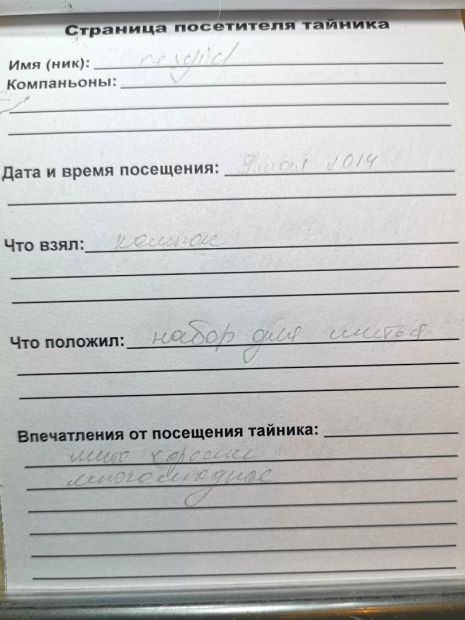 Страница посетителя тайника
Имя (ник):
Компаньоны:
Дата и время посещения: 9 мая 2014
Что взял:
Что положил: набор для шитья
Впечатления от посещения тайника:
многолюдное